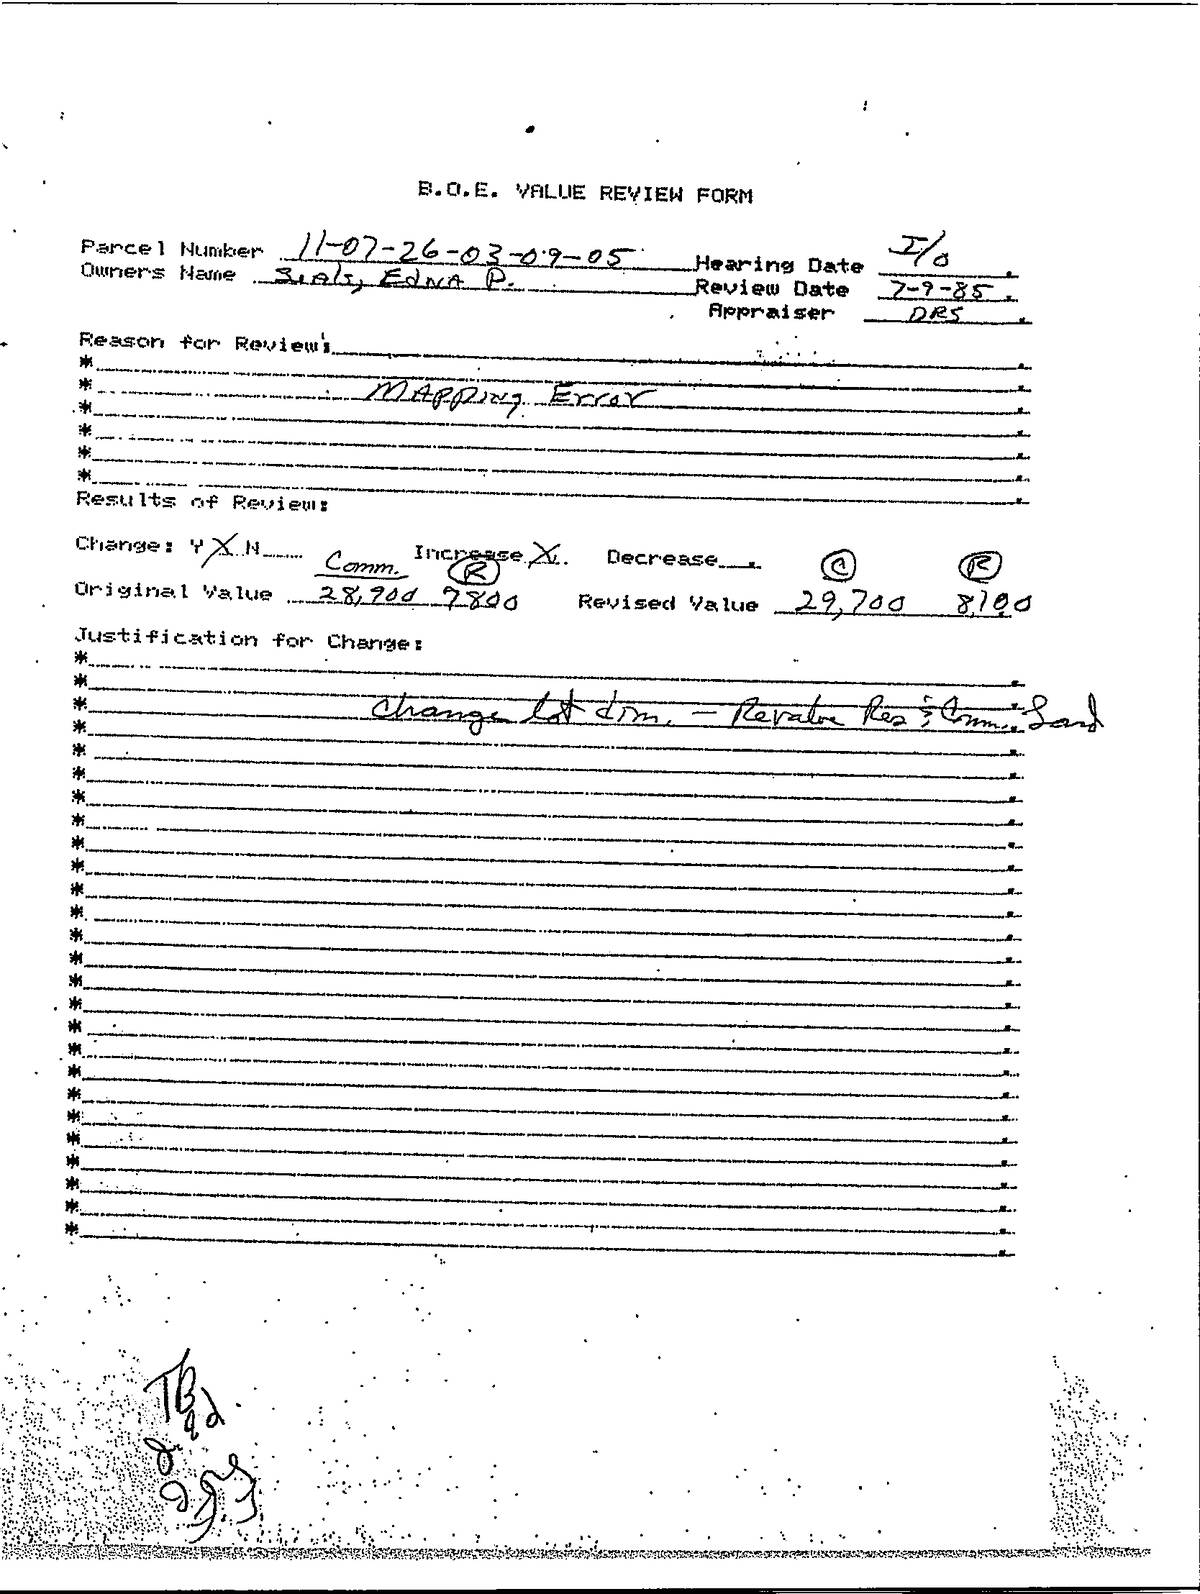 B.O.E. VALUE REVIEW FORM
Parcel Number 11-07-26-03-09-05 Hearing Date I/O
Owners Name Seals, Edna P. Review Date 7-9-85
Appraiser DRS
Reason for Review:
*
* Mapping Error
*
*
*
*
Results of Review:
Change: Y X N Increase X Decrease
Comm. R C R
Original Value 28,900 7800 Revised Value 29,700 8,100
Justification for Change:
*
*
* Change lot dim. - Revalue Res & Comm. Land
*
*
*
*
*
*
*
*
*
*
*
*
*
*
*
*
*
*
*
*
*
*
*